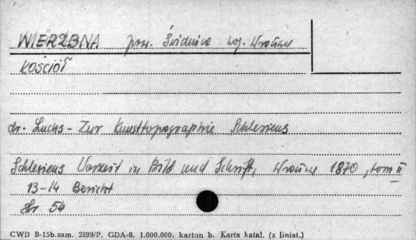 WIERZBNA pow. Świdnica woj. Wrocław
KOŚCIÓŁ
dr. Luchs - Zur Kunsttopographie Schlesiens
Schlesiens Vorzeit in Bild und Schrift, Wrocław 1870, tom II
13-14 Bericht
Str 54
CWD B-15b.zam. 2899/P. GDA-8. 1.000.000. karton b. Karta katal. (z liniat.)